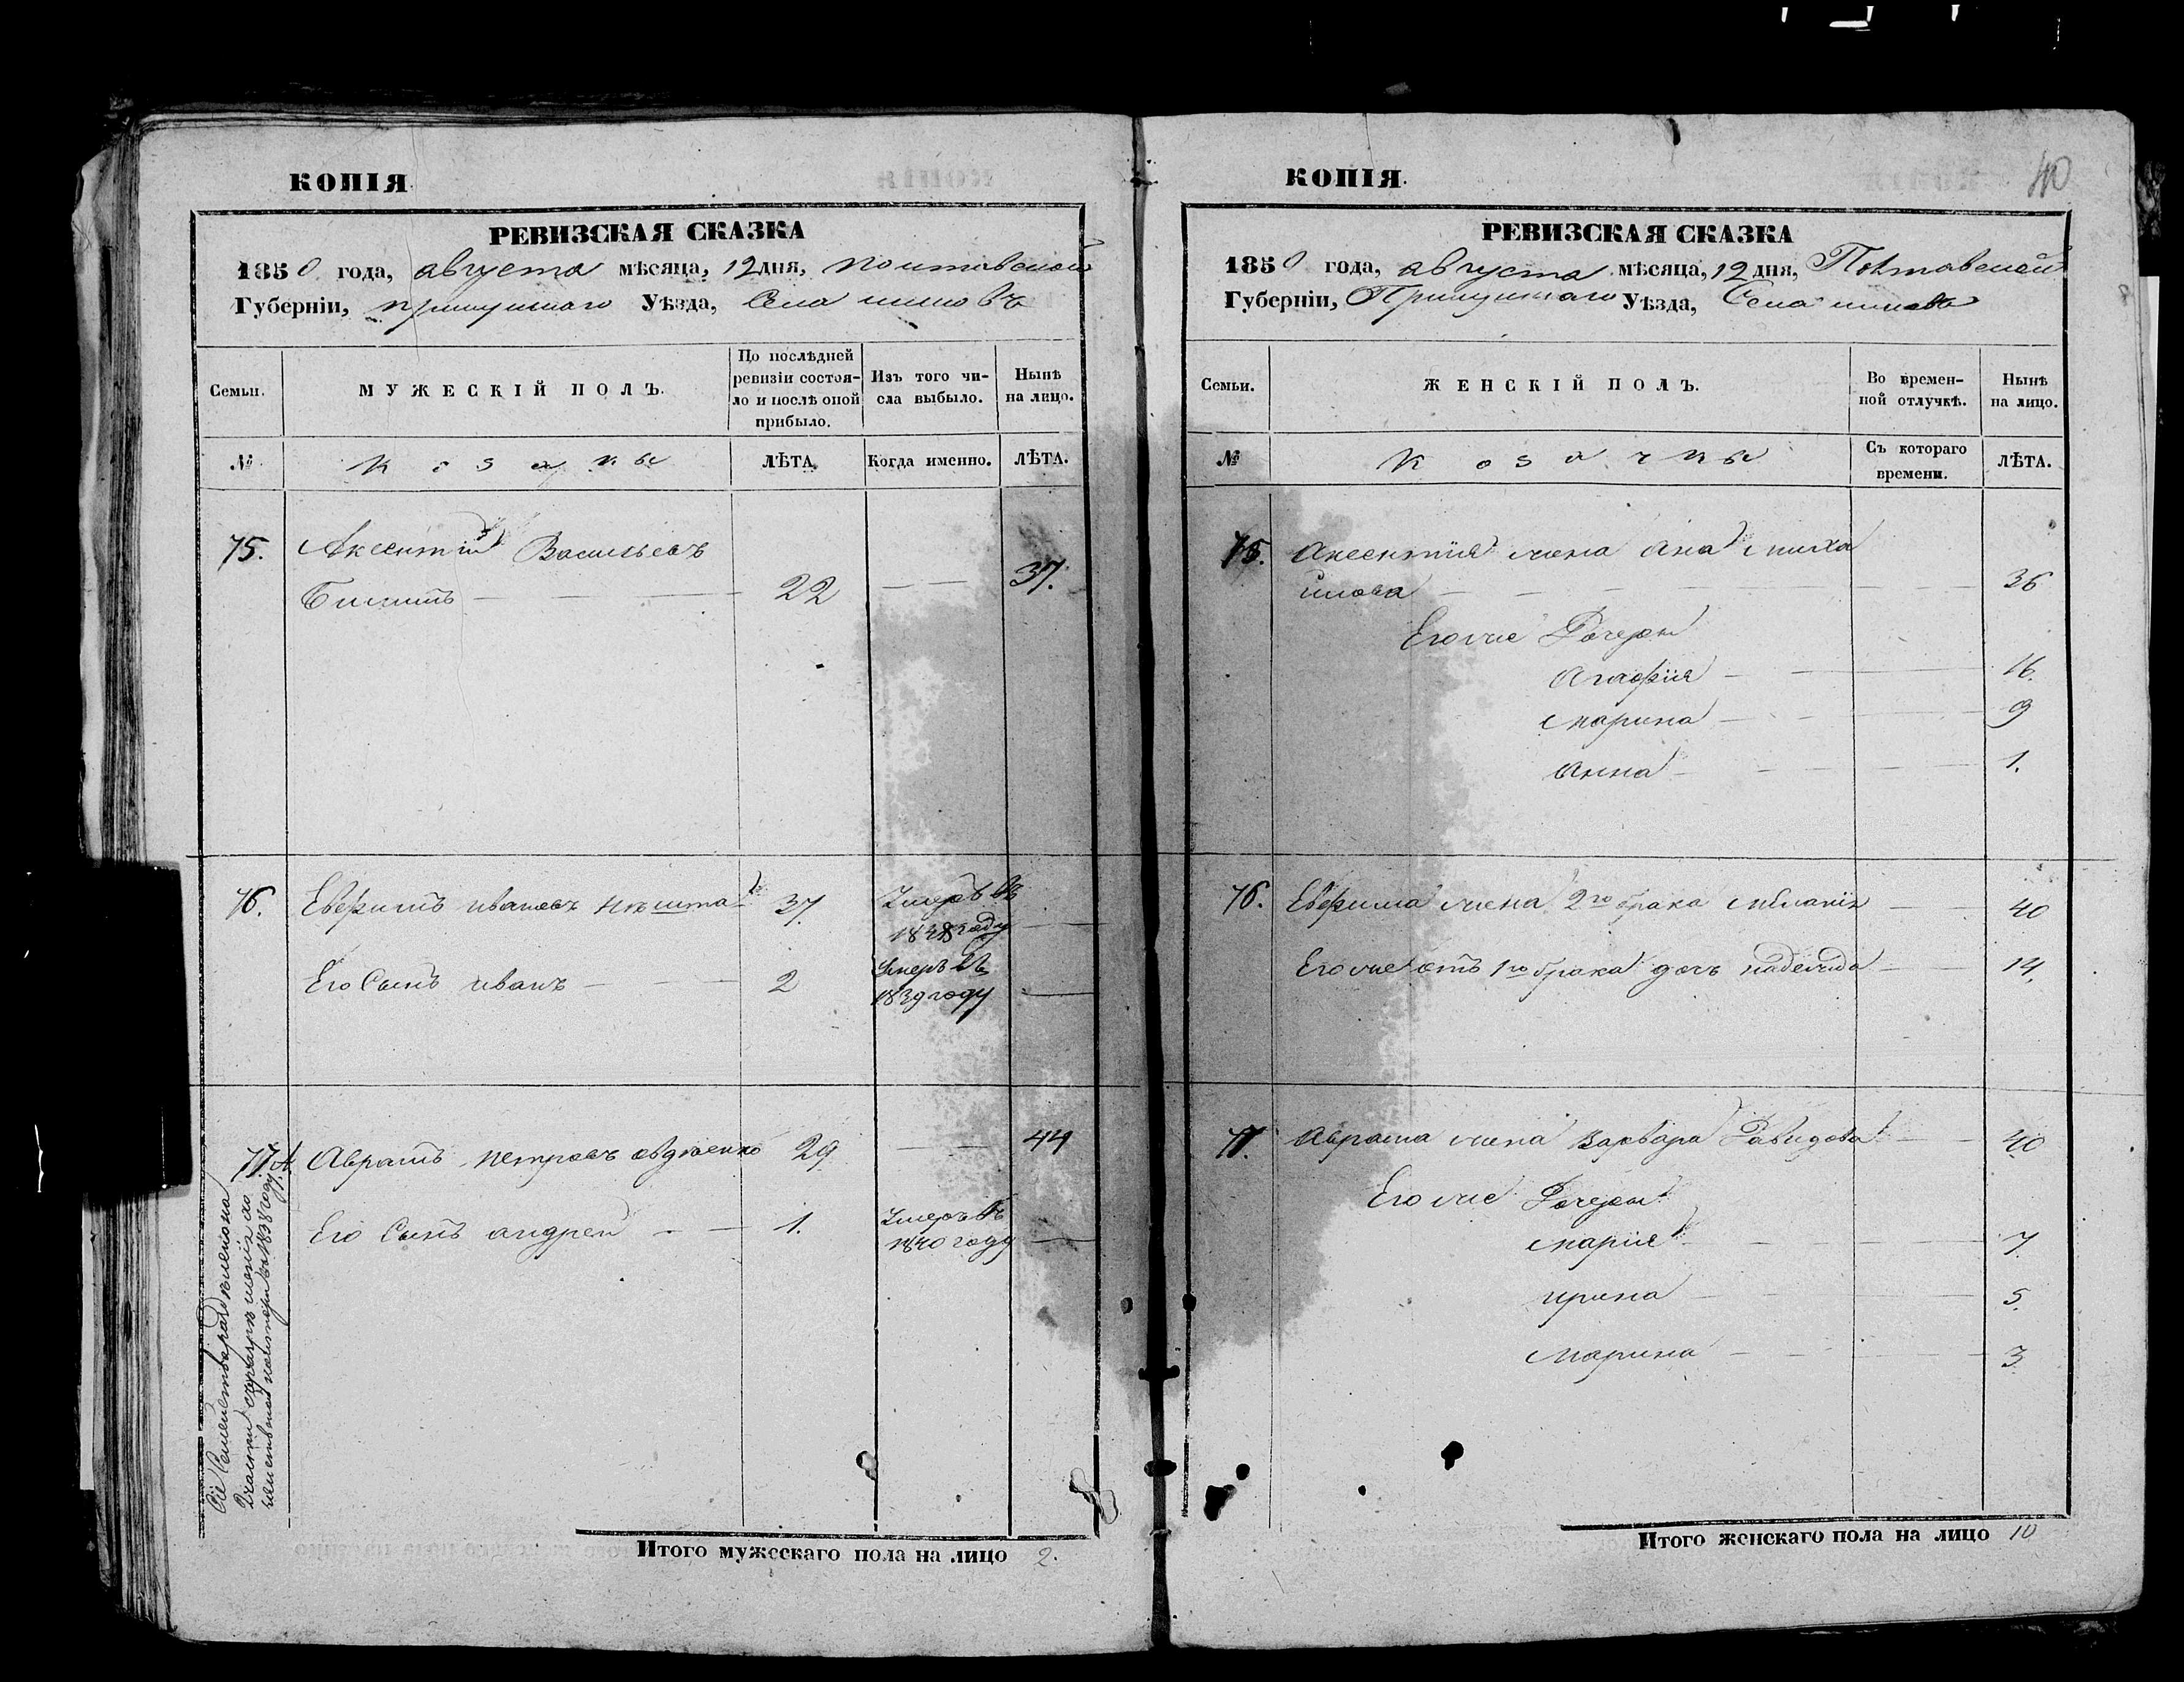 КОПІЯ.
РЕВИЗСКАЯ СКАЗКА
1850 года, августа мѣсяца, 12 дня, Полтавской
Губерніи, Прилуцкаго Уѣзда, Села
Семьи. МУЖЕСКІЙ ПОЛЪ. По послѣдней ревизіи состояло и послѣ оной прибыло. Изъ того числа выбыло. Нынѣ на лицо.
№ Козаки ЛѢТА. Когда именно. ЛѢТА.
75. Аксентій Васильевъ
22 37.
76. Евфимъ Ивановъ 37. Умеръ въ
1848 году
Его Сынъ иванъ 2 Умеръ въ
1839 году
77. Аврамъ Петровъ авдѣенко 29 44
Его Сынъ андрей 1. Умеръ въ
1840 году
Сіе Семейство
1838 году
Итого мужескаго пола на лицо 2.
40
КОПІЯ.
РЕВИЗСКАЯ СКАЗКА
1850 года, августа мѣсяца, 12 дня, Полтавской
Губерніи, Прилуцкаго Уѣзда, Села
Семьи. ЖЕНСКІЙ ПОЛЪ. Во временной отлучкѣ. Нынѣ на лицо.
№ Козачки Съ котораго времени. ЛѢТА.
75. Аксентія жена Ана Миха
илова 36
Его же Дочери
Агафія 16.
Марина 9
Анна 1.
76. Евфима жена 2го брака Меланія 40
Его же отъ 1го брака дочь надежда 14.
77. Аврама жена Варвара Давидова 40
Его же Дочери
Марія 7
ирина 5.
Марина 3
Итого женскаго пола на лицо 10